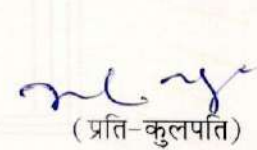 ( प्रति-कुलपति)